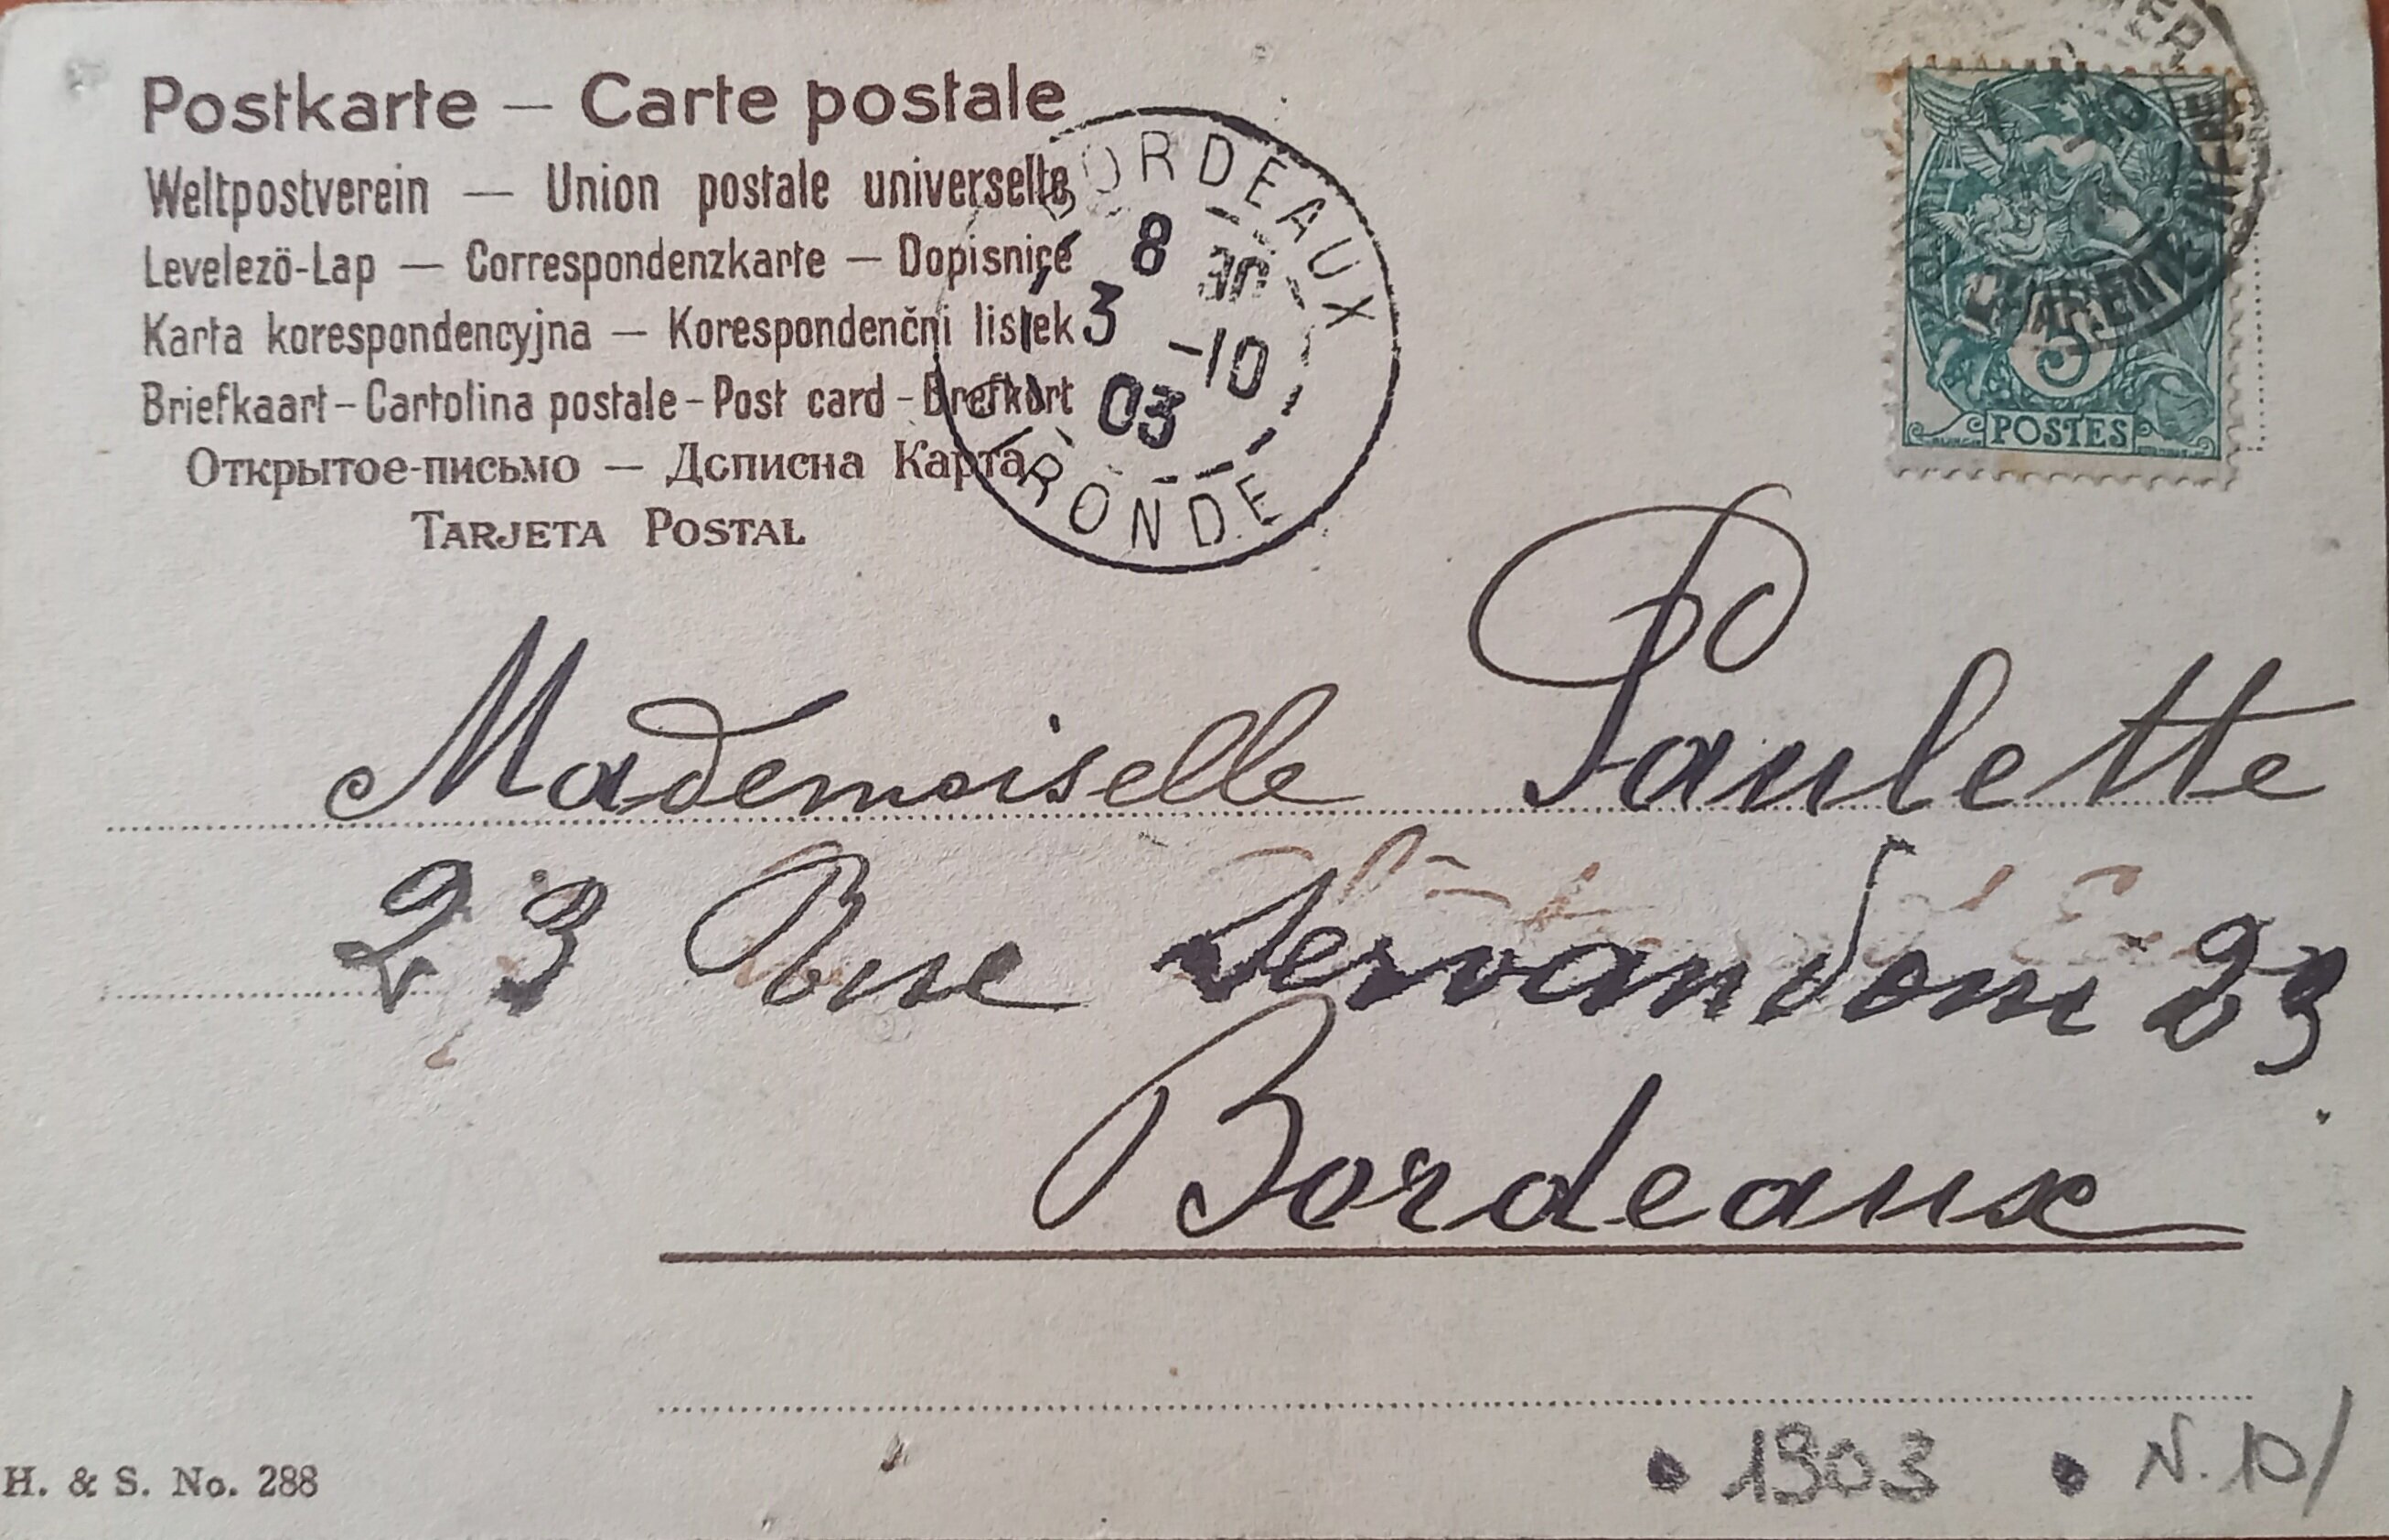 Postkarte — Carte postale
Weltpostverein — Union postale universelle
Levelezö-Lap — Correspondenzkarte — Dopisnice
Karta korespondencyjna — Korespondenčni listek
Briefkaart – Cartolina postale – Post card – Brefkort
Открытое-письмо — Дописна Карта
TARJETA POSTAL
BORDEAUX
8 30
3 -10
03
GIRONDE
5
POSTES
CHARENTE-INFRE
Mademoiselle Paulette
23 Rue Servandoni 23
Bordeaux
H. & S. No. 288
1903 N.10/